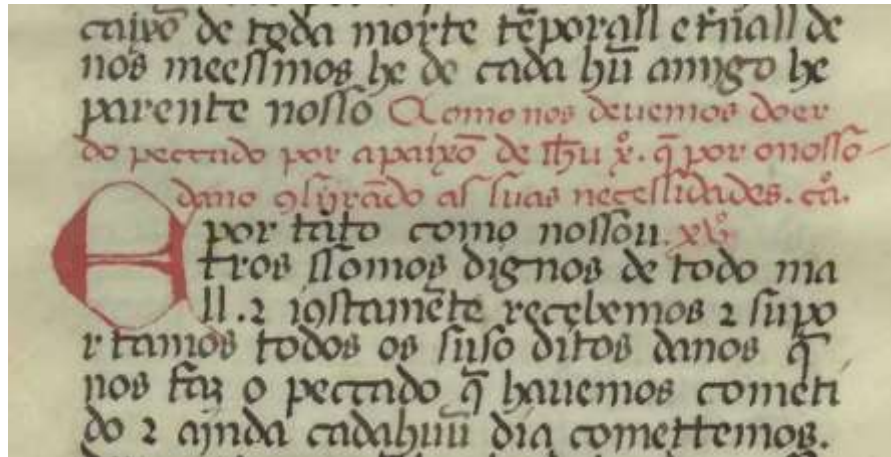 caixõ de toda morte tẽporall eternall de
nos meessmos he de cada hũu amigo he
parente nosso Como nos deuemos doer
do peccado por a paixõ de ihũ xº. q̃ por o nosso
dano as suas necessidades. cãº.
E por tãto como nossou. xvº
tros ssomos dignos de todo ma
ll. ⁊ iostamẽte recebemos ⁊ supo
rtamos todos os suso ditos danos q̃
nos faz o peccado q̃ hauemos cometi
do ⁊ ajnda cadahuũ dia comettemos.